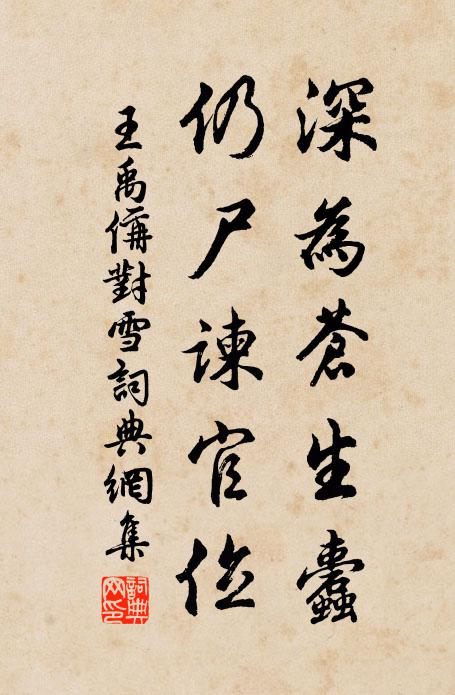 深為蒼生蠹
仍尸諫官位
王禹偁對雪詞典網集
詞典網印